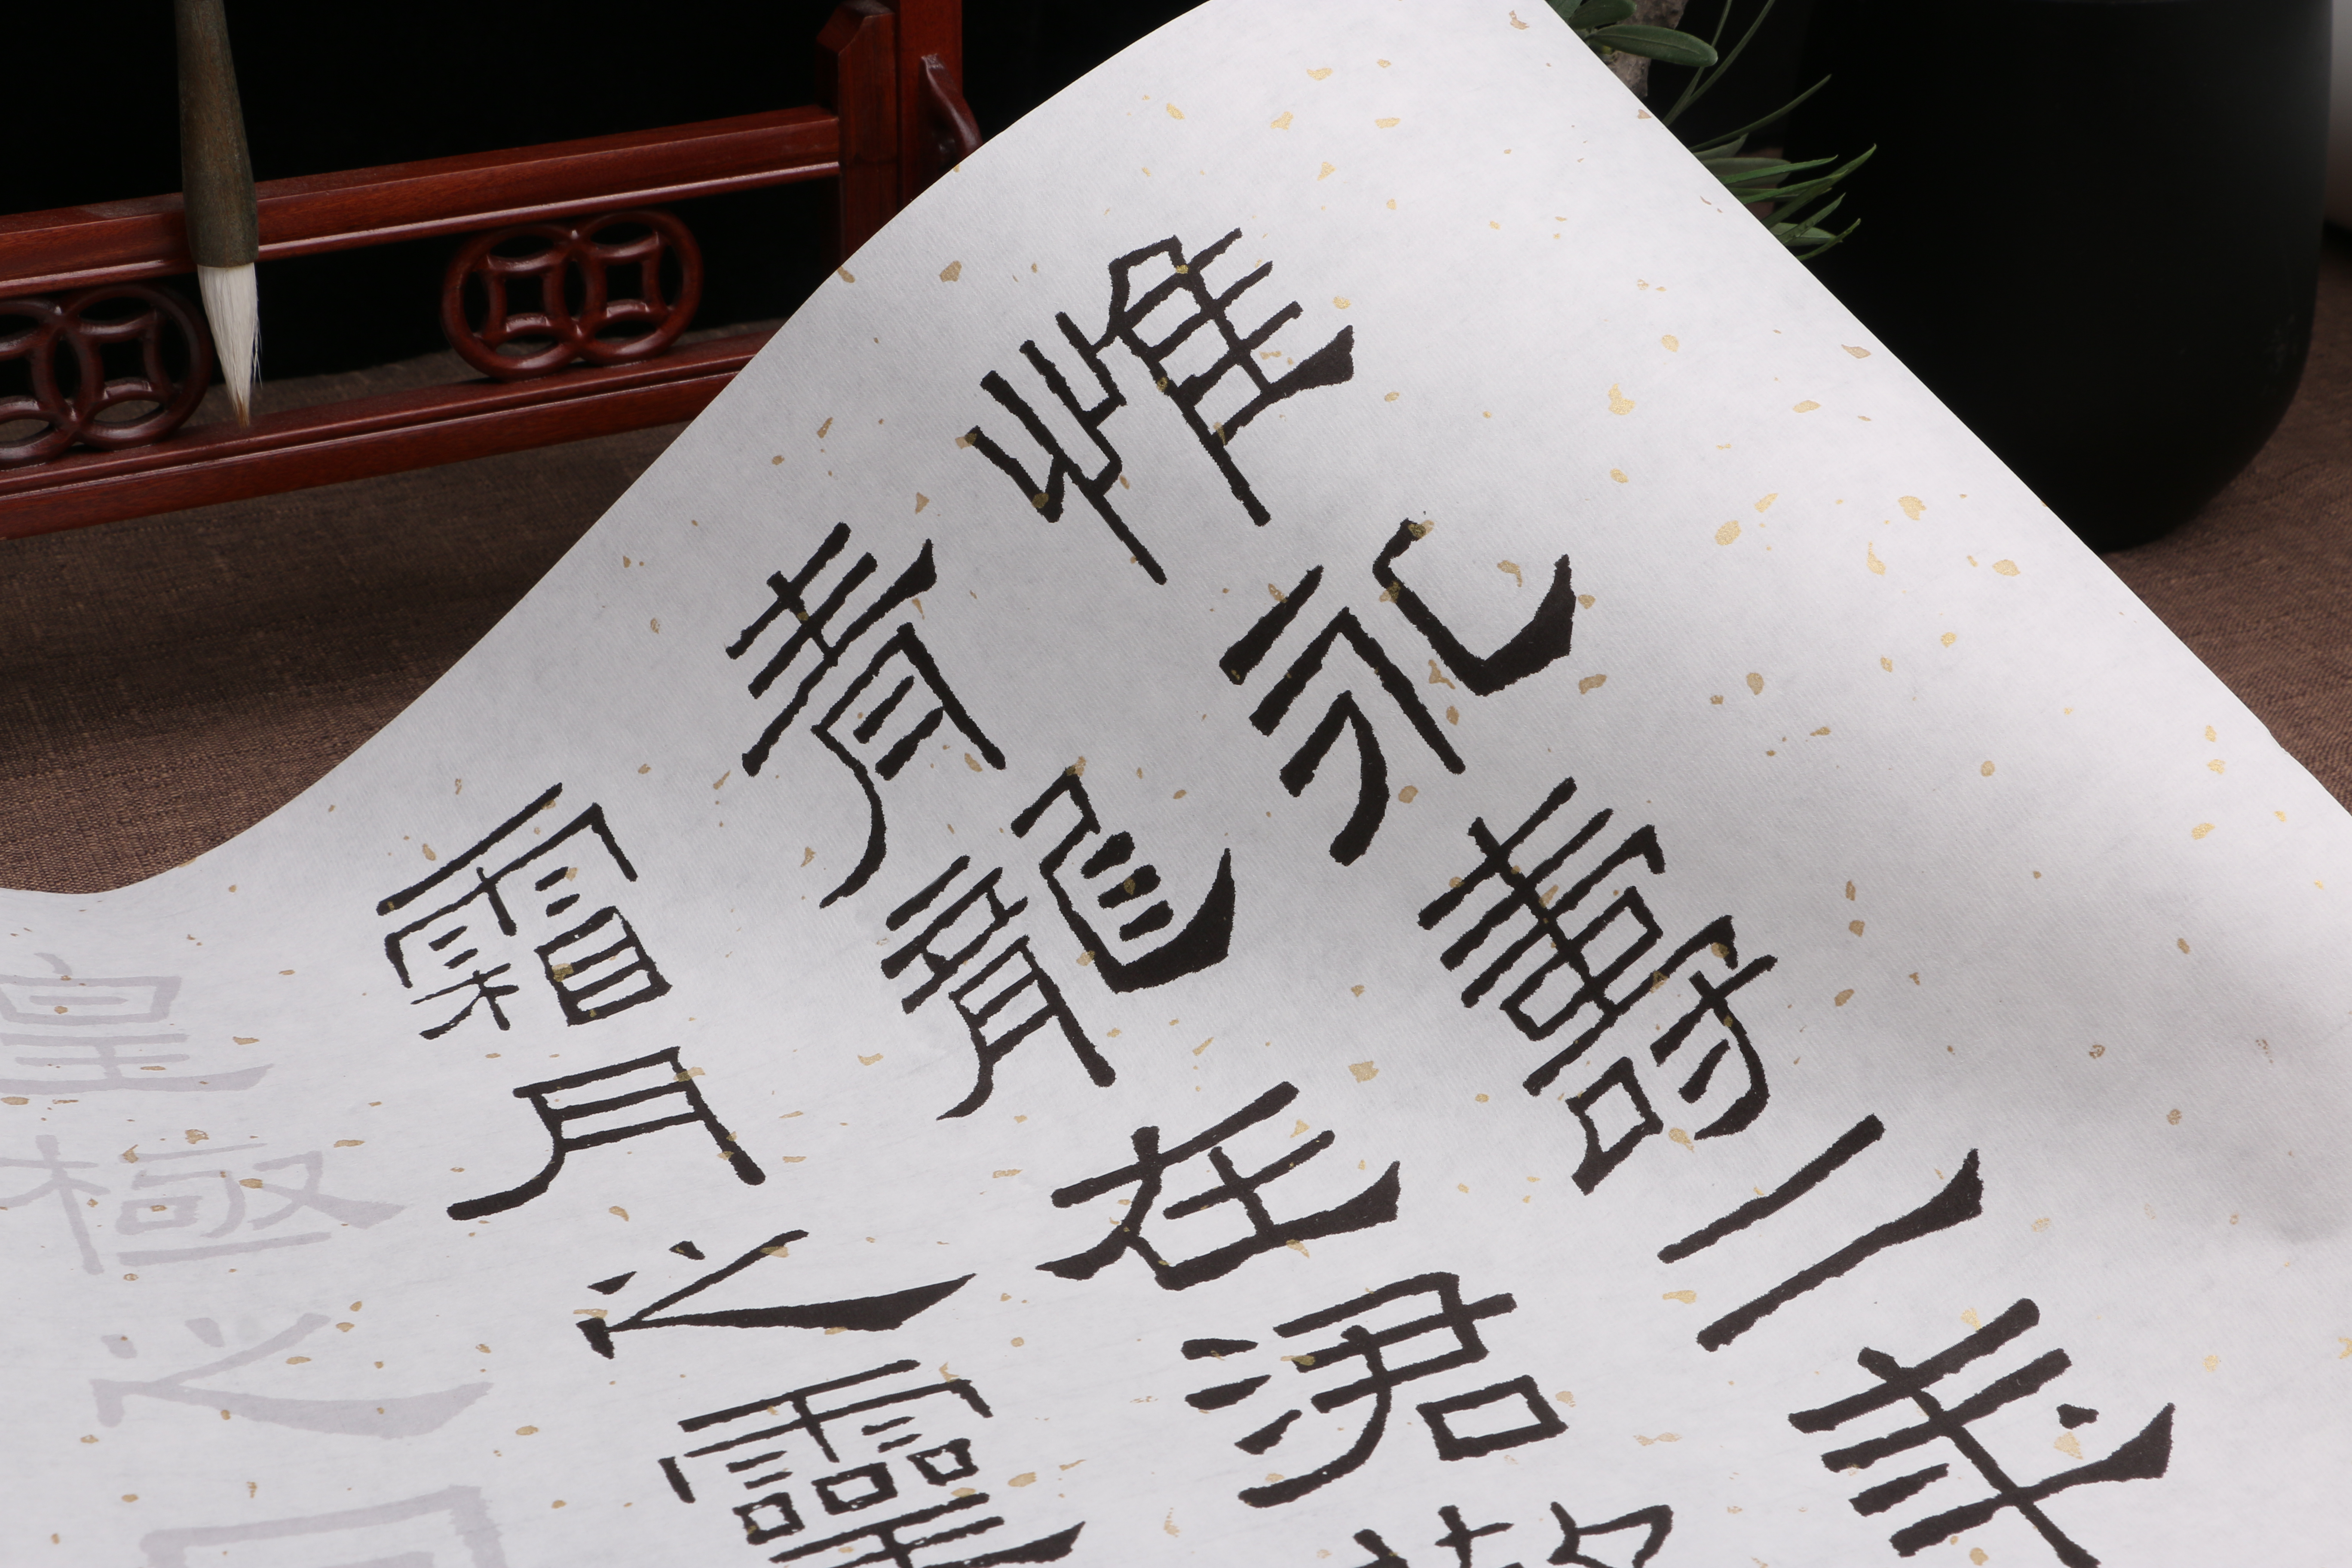 惟永壽二年
青龍在涒
霜月之靈
皇極之